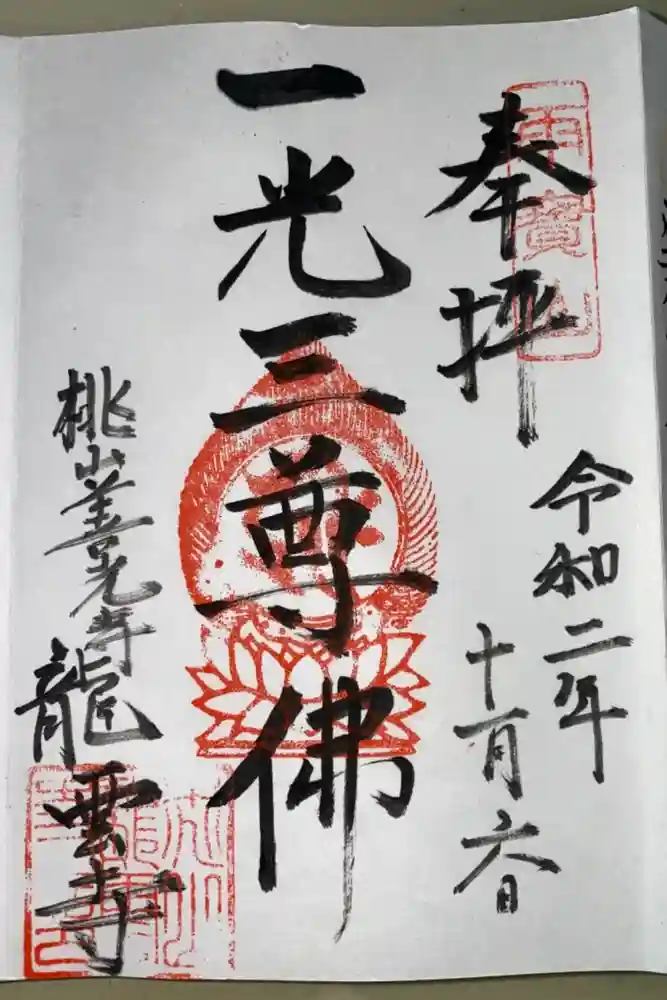 奉拝
令和二年
十一月六日
一光三尊佛
桃山善光寺
龍雲寺